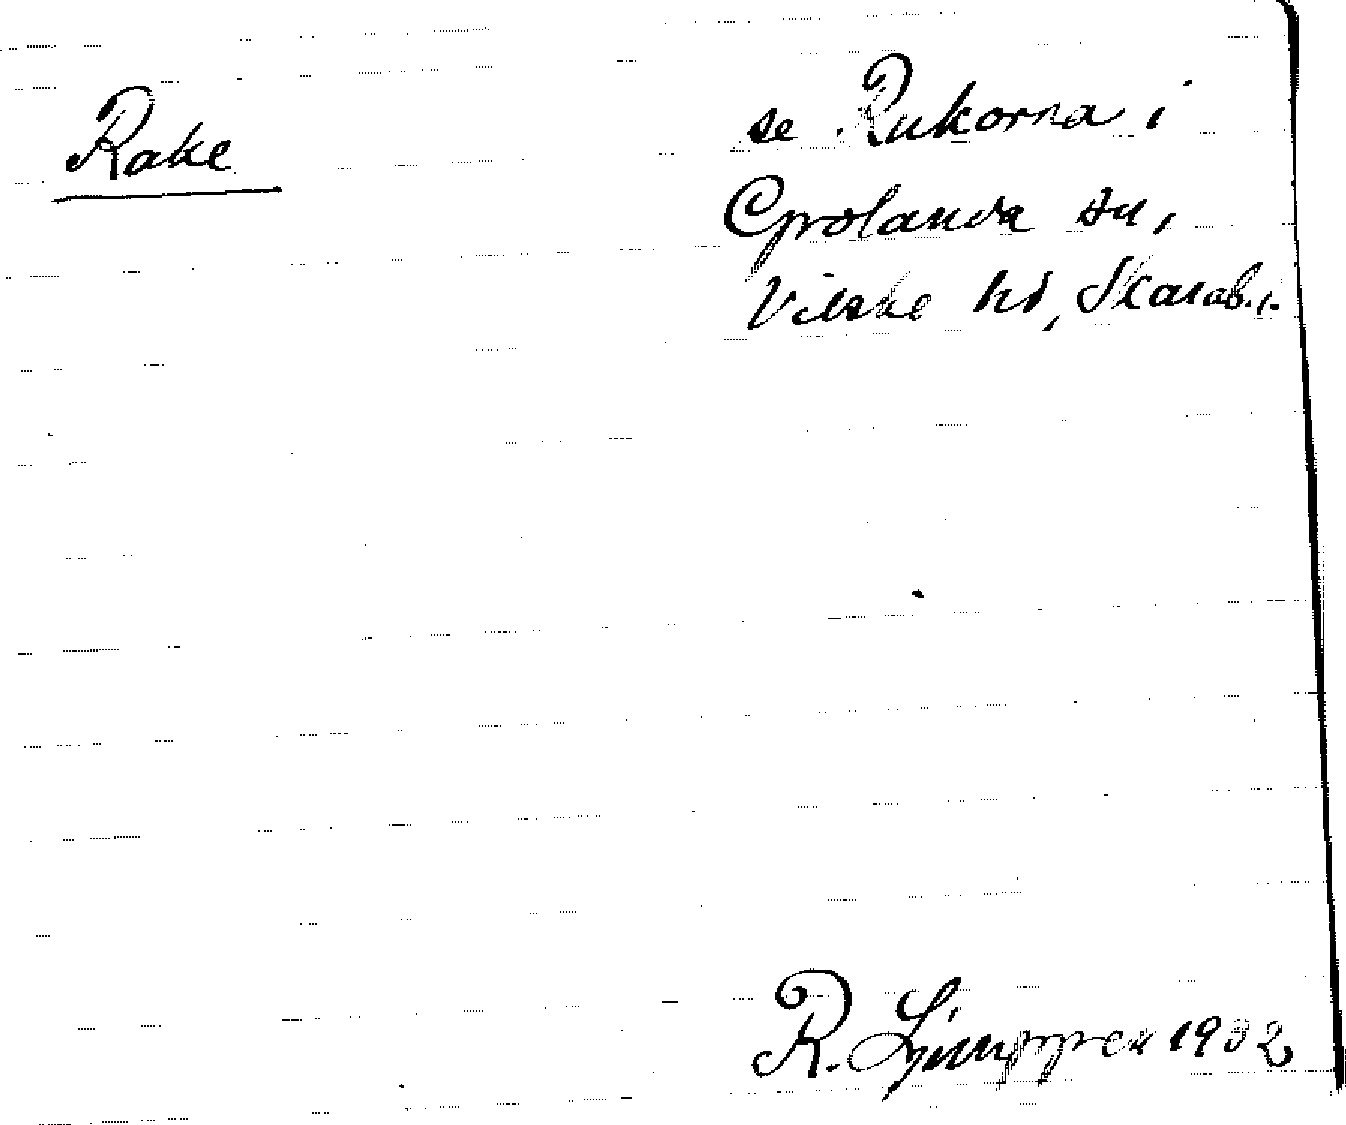 Rake
se Rukorna i
Grolanda sn,
Vilske hd, Skarab.l.
R. Ljunggren 1932